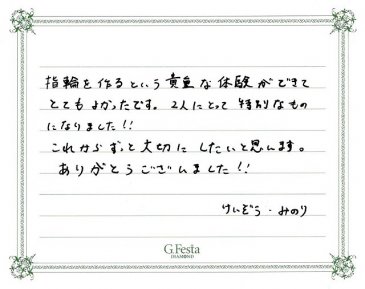 指輪を作るという貴重な体験ができて
とてもよかったです。2人にとって特別なもの
になりました!!
これからずっと大切にしたいと思います。
ありがとうございました!!
けいぞう・みのり
G.Festa
DIAMOND